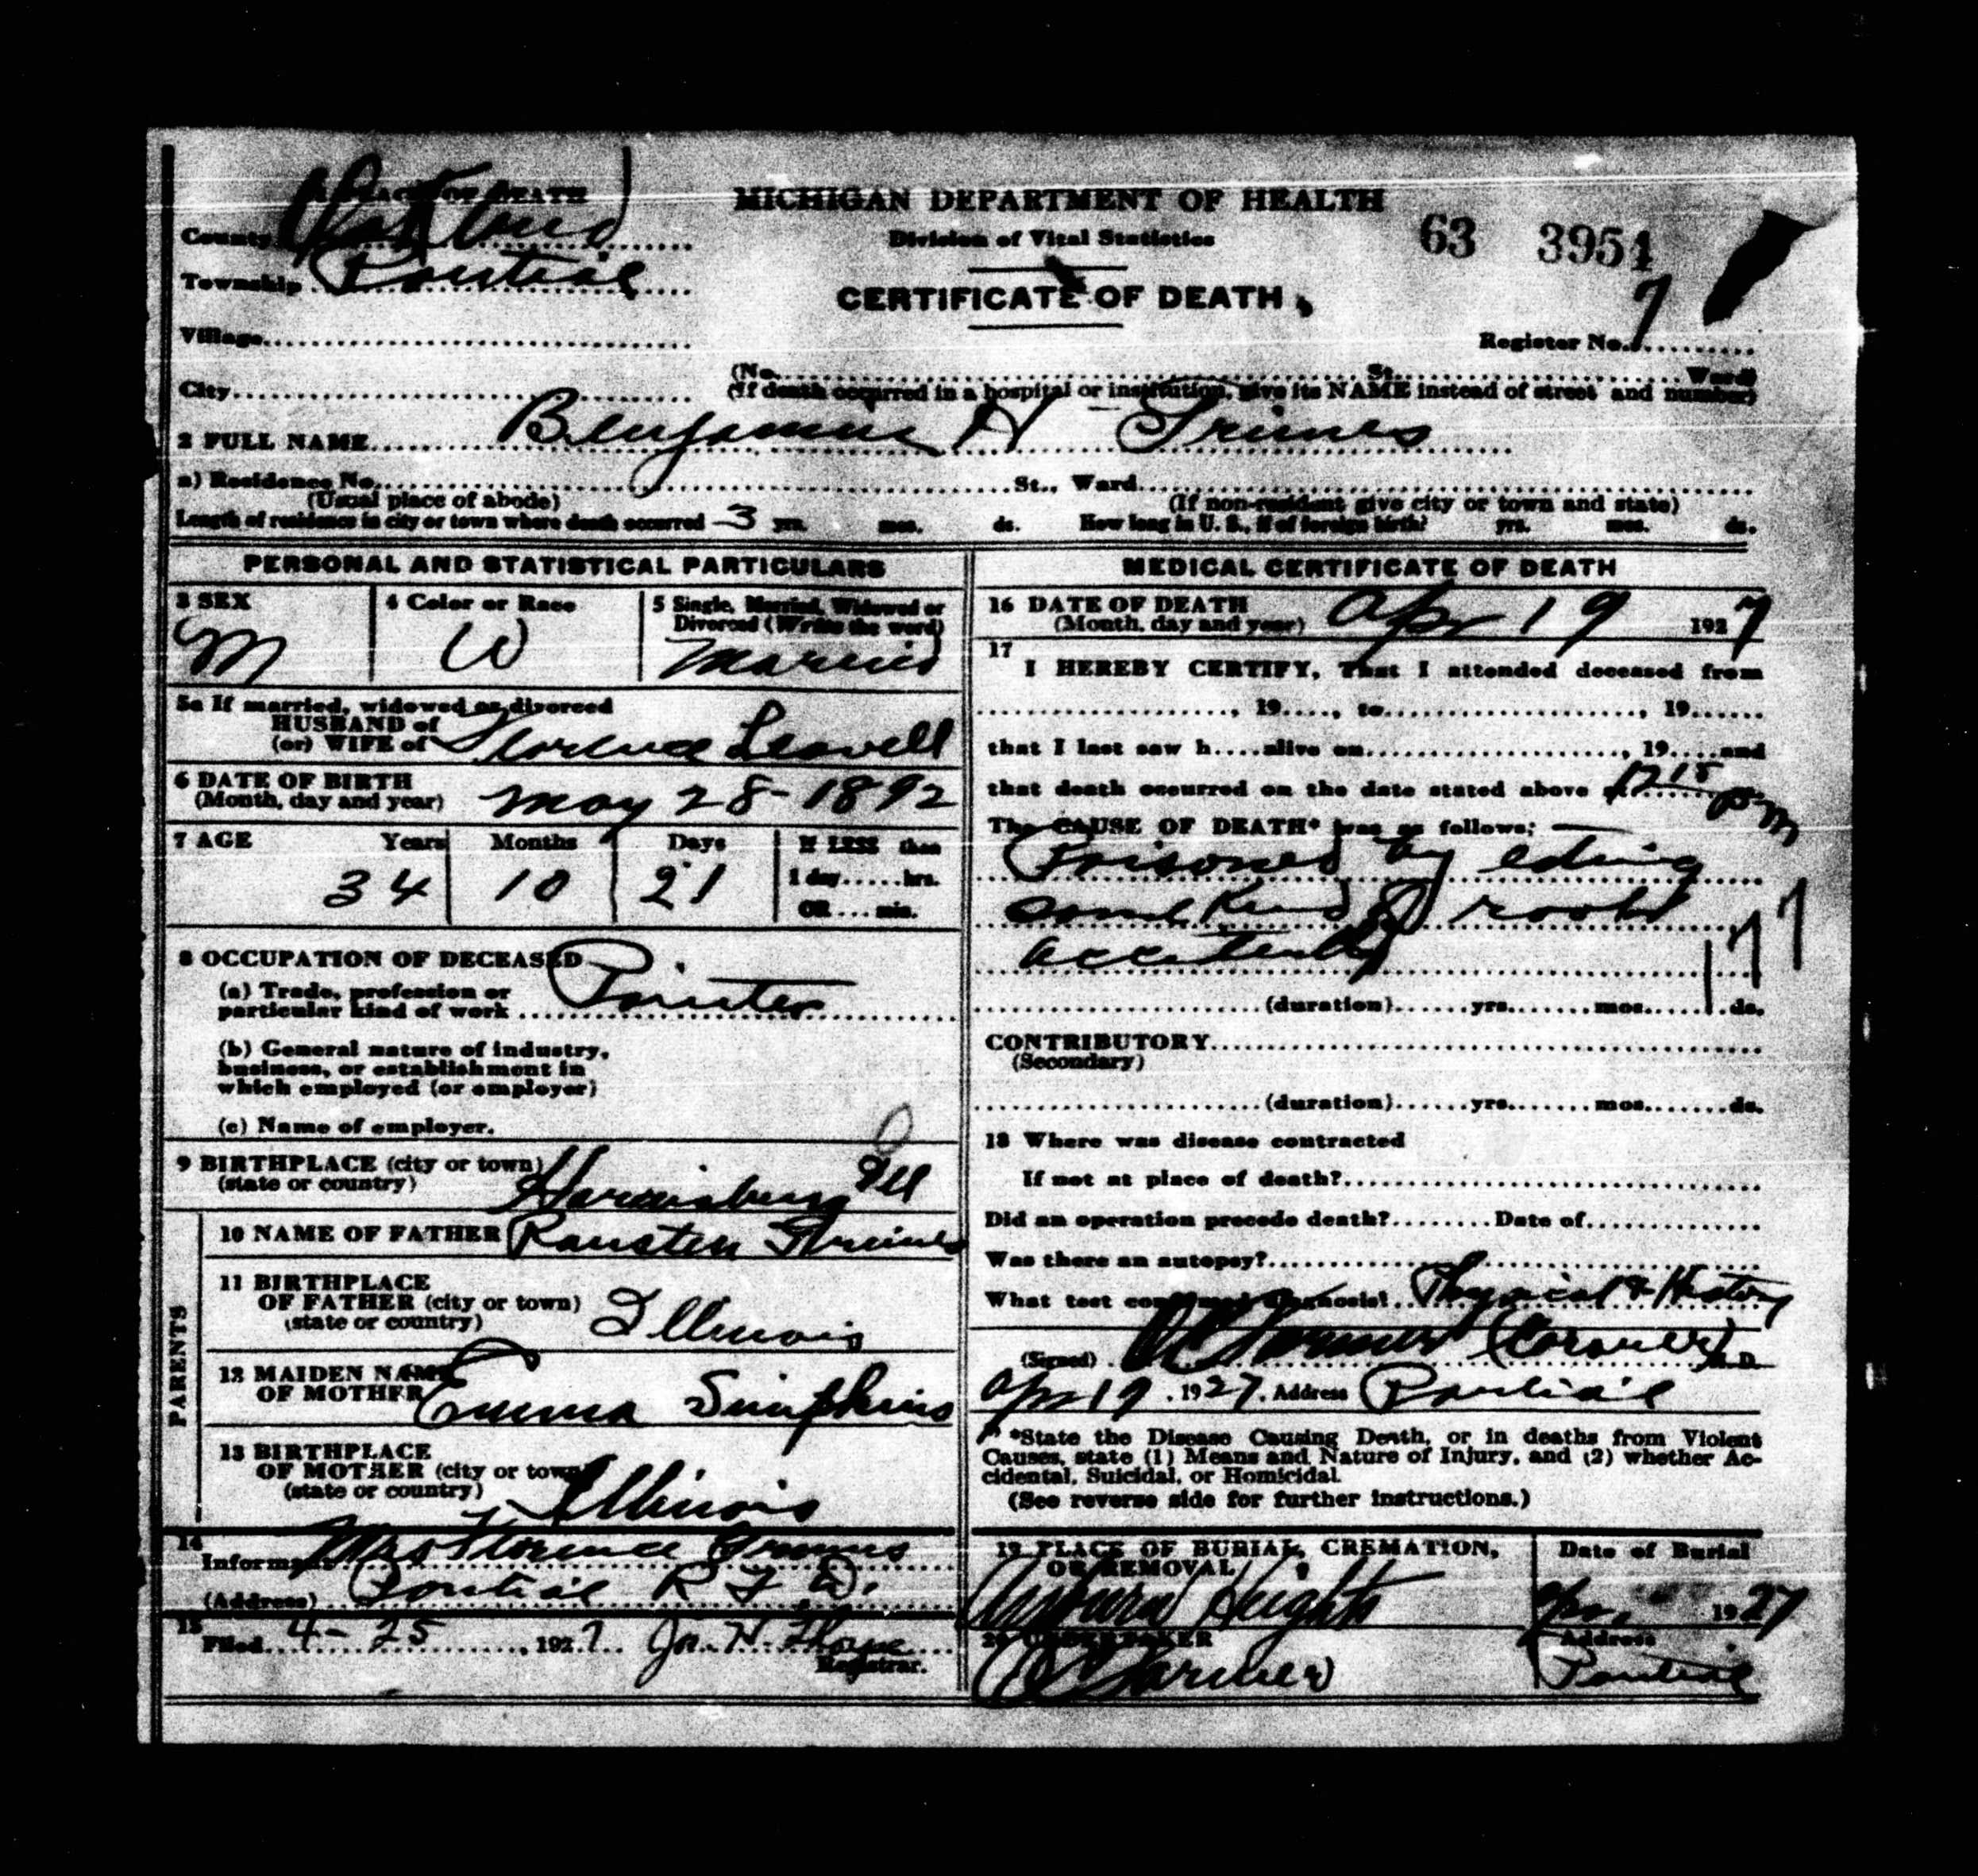 1 PLACE OF DEATH
County Oakland
Township Pontiac
Village
City
MICHIGAN DEPARTMENT OF HEALTH
Division of Vital Statistics
CERTIFICATE OF DEATH
63 3954
Register No. 7
(No. St. Ward)
(If death occurred in a hospital or institution, give its NAME instead of street and number)
2 FULL NAME Benjamine H Grimes
a) Residence No. St., Ward
(Usual place of abode) (If non-resident give city or town and state)
Length of residence in city or town where death occurred 3 yrs. mos. ds. How long in U. S., if of foreign birth? yrs. mos. ds.
PERSONAL AND STATISTICAL PARTICULARS
3 SEX M
4 Color or Race W
5 Single, Married, Widowed or
Divorced (Write the word)
Married
5a If married, widowed or divorced
HUSBAND of
(or) WIFE of Florence Leavell
6 DATE OF BIRTH
(Month, day and year) May 28-1892
7 AGE Years Months Days If LESS than
34 10 21 1 day......hrs.
OR....min.
8 OCCUPATION OF DECEASED
(a) Trade, profession or
particular kind of work
(b) General nature of industry,
business, or establishment in
which employed (or employer)
(c) Name of employer.
9 BIRTHPLACE (city or town)
(state or country) Harrisburg Ill
PARENTS
10 NAME OF FATHER Grimes
11 BIRTHPLACE
OF FATHER (city or town)
(state or country) Illinois
12 MAIDEN NAME
OF MOTHER Emma Simpkins
13 BIRTHPLACE
OF MOTHER (city or town)
(state or country) Illinois
14
Informant Mrs Florence Grimes
(Address) Pontiac R F D.
15
Filed 4-25, 1927 Jn. H. Thorpe
Registrar.
MEDICAL CERTIFICATE OF DEATH
16 DATE OF DEATH
(Month, day and year) Apr 19 1927
17
I HEREBY CERTIFY, That I attended deceased from
, 19...., to , 19
that I last saw h....alive on , 19....and
that death occurred on the date stated above 12 15 PM
The CAUSE OF DEATH* was as follows:
Poisoned by eating
some kind of roots
accidently
177
(duration) yrs. mos. ds.
CONTRIBUTORY
(Secondary)
(duration) yrs. mos. ds.
18 Where was disease contracted
If not at place of death?
Did an operation precede death? Date of
Was there an autopsy?
What test confirmed diagnosis? Physical & History
(Signed) Farmer (Coroner) M.D.
Apr 19, 1927. Address Pontiac
*State the Disease Causing Death, or in deaths from Violent
Causes, state (1) Means and Nature of Injury, and (2) whether Ac-
cidental, Suicidal, or Homicidal.
(See reverse side for further instructions.)
19 PLACE OF BURIAL, CREMATION,
OR REMOVAL
Auburn Heights
Date of Burial
Apr. 1927
20 UNDERTAKER
Farmer
Address
Pontiac